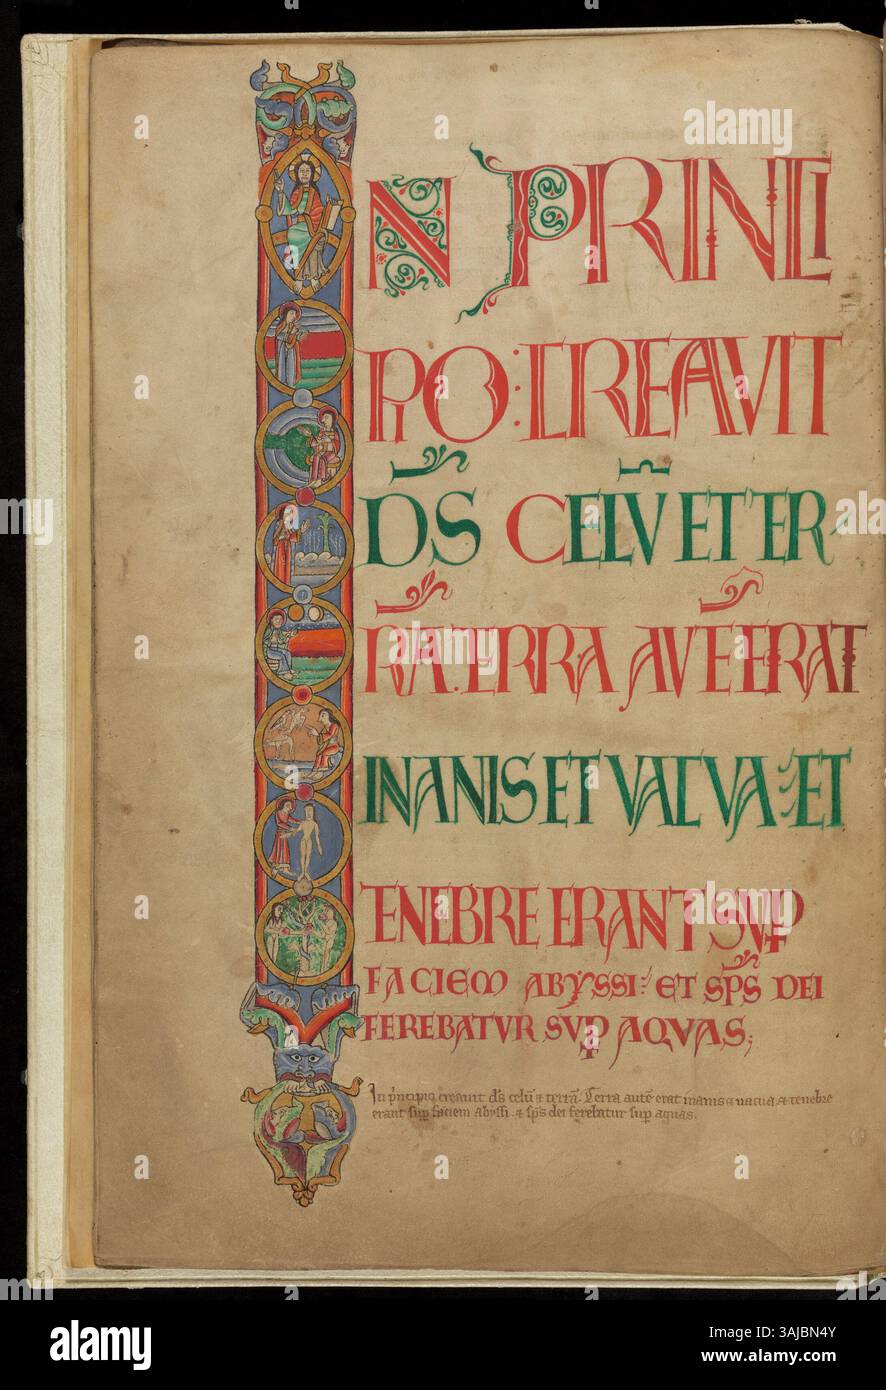 IN PRINCI
PIO: CREAVIT
D̄S CELV̄ ET TER-
RĀ. TERRA AVTĒ ERAT
INANIS ET VACVA: ET
TENEBRE ERANT SVP
FACIEM ABYSSI: ET SP̄S DEI
FEREBATVR SVP AQVAS;
In p'ncipio creauit ds celū & terrā. Terra autē erat inanis & uacua & tenebre
erant sup faciem abyssi. & sp̄s dei ferebatur sup aquas.
alamy
Image ID: 3AJBN4Y
www.alamy.com